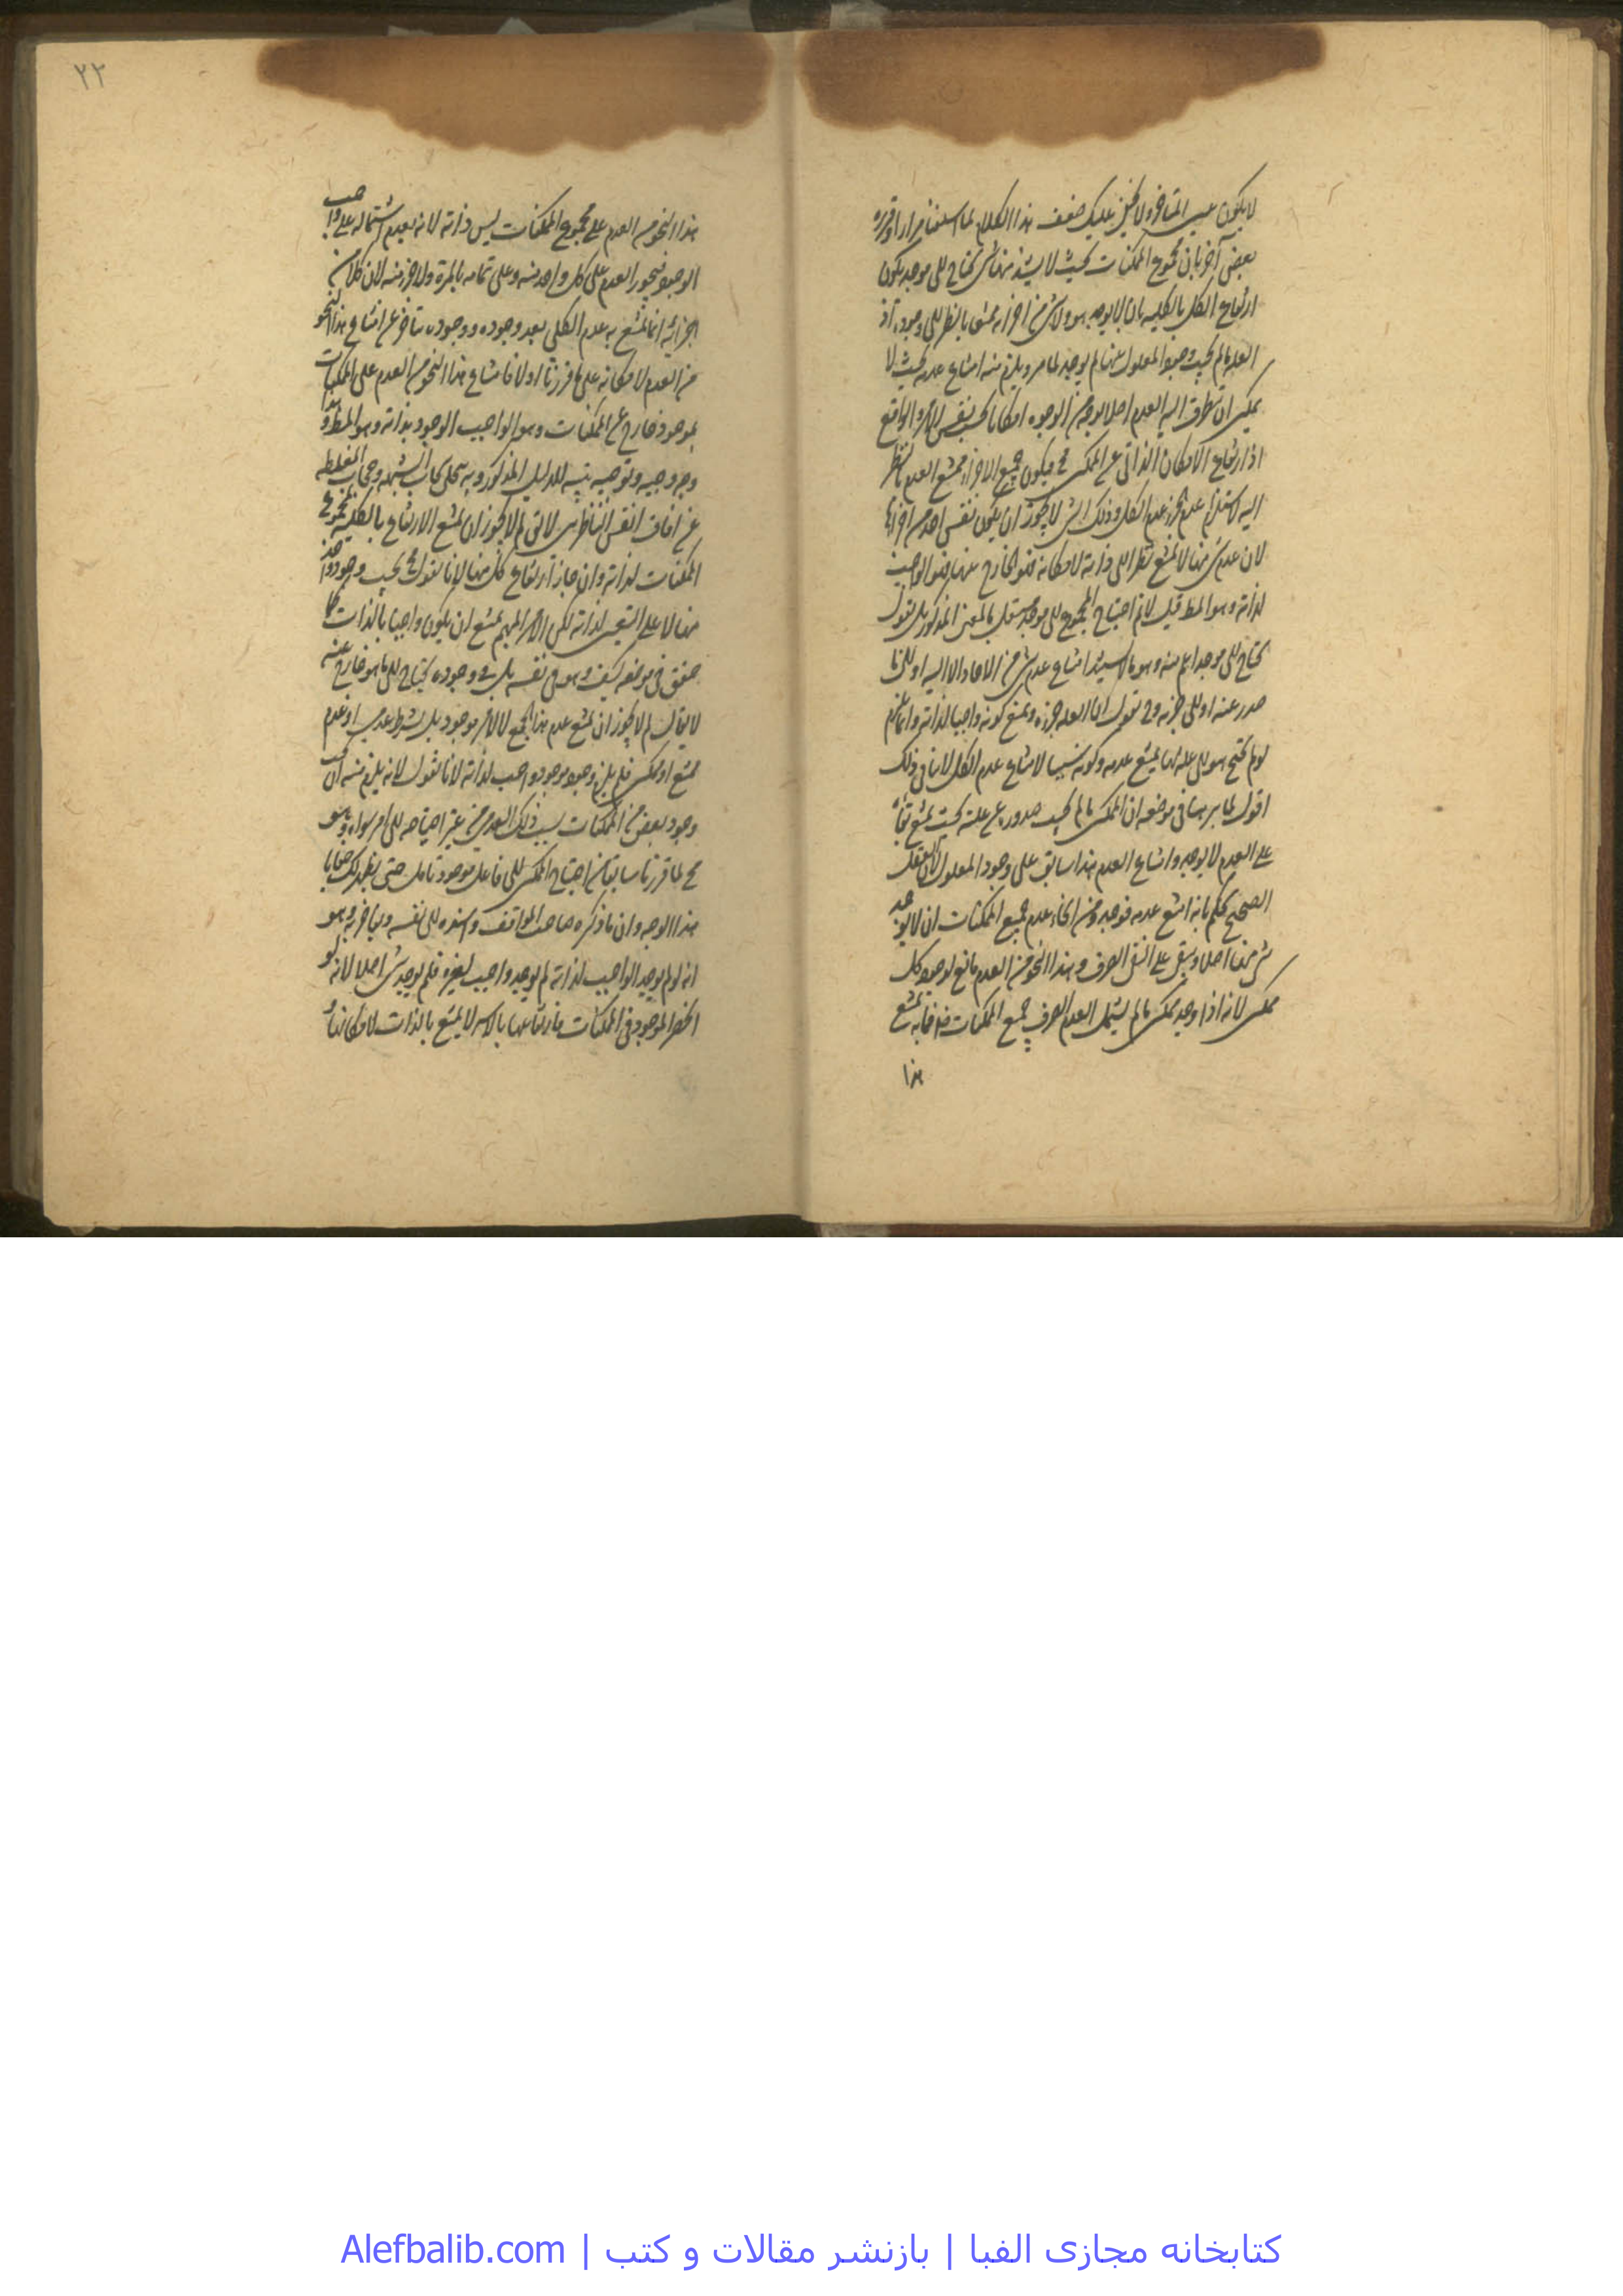 لا يكون عين المتاخر ولا يخفى عليك ضعف هذا الكلام لما اسلفنا مرارا وقرره
بعض آخر بان مجموع الممكنات بحيث لا يشذ منها شئ يحتاج الى موجد يكون
ارتفاع الكل بالكليه بان لا يوجد هو ولا شئ من اجزائه ممتنعا بالنظر الى وجوده اذ
العله ما لم يجب وجود المعلول عنها لم يوجد لما مر ويلزم منه امتناع عدمه بحيث لا
يمكن ان يتطرق اليه العدم اصلا بوجه من الوجوه امكانا بحسب نفس الامر والواقع
اذ ارتفاع الامكان الذاتى عن الممكن مح فيكون جميع الاجزاء ممتنع العدم بالنظر
اليه لاستلزام عدم الجزء عدم الكل وذلك الشئ لا يجوز ان يكون نفس احد من اجزائها
لان عدم شئ منها لا يمتنع نظرا الى ذاته لامكانه فهو الخارج عنها فهو الواجب
لذاته وهو المط قيل لانم احتياج المجموع الى موجد مستقل بالمعنى المذكور بل نقول
يحتاج الى موجد اعم منه وهو ما لا يسند امتناع عدم شئ من الاحاد الا اليه او الى ما
صدر عنه او الى جزئه وح نقول ان العله جزؤه ونمنع كونه واجبا لذاته وانما يلزم
لو لم يحتج هو الى عله بها يمتنع عدمه وكونه سببا لامتناع عدم الكل لا ينافى ذلك
اقول لما برهنا فى موضعه ان الممكن ما لم يجب صدوره عن علته بحيث يمتنع
على العدم لا يوجد وامتناع العدم هذا سابق على وجود المعلول لان العقل
الصحيح يحكم بانه امتنع عدمه فوجد ومن انحاء عدم جميع الممكنات ان لا يوجد
شئ منها اصلا ويبقى على النفى الصرف وهذا النحو من العدم مانع لوجود كل
ممكن لانه اذا وجد ممكن ما لم يشمل العدم الصرف جميع الممكنات فما به يمتنع
هذا
٢٢
هذا النحو من العدم على مجموع الممكنات ليس ذاته لانه لعدم اشتماله على واجب
الوجود فيجوز العدم على كل واحد منه وعلى تمامه بالمرة ولا جزء منه لان كلا من
اجزائه انما يمتنع به عدم الكلى بعد وجوده ووجوده متاخر عن امتناع هذا النحو
من العدم لامكانه على ما قررنا اولا فامتناع هذا النحو من العدم على الممكنات
بموجود خارج عن الممكنات وهو الواجب الوجود بذاته وهو المط وهذا
وجه وجيه وتوجيه نبيه للدليل المذكور وبه ينجلى سحاب الشبهه وحجاب المغلطه
عن افاق انفس الناظرين لا يق لم لا يجوز ان يمتنع الارتفاع بالكليه لمجموع
الممكنات لذاته وان جاز ارتفاع كل منها لانا نقول مح يجب وجود واحد
منها لا على التعيين لذاته لكن الامر المبهم يمتنع ان يكون واجبا بالذات كما
حقق فى موضعه كيف وهو فى نفسه بل فى وجوده يحتاج الى ما هو خارج عنه
لا يقال لم لا يجوز ان يمتنع عدم هذا الجميع لا لامر موجود بل بشرط عدمى او عدم
ممتنع او ممكن فلم يلزم وجود موجود واجب لذاته لانا نقول لانه يلزم منه ان يجب
وجود بعض من الممكنات بسبب ذلك العدم من غير احتياجه الى امر سواه وهو
مح لما قررنا سابقا من احتياج الممكن الى فاعل موجود تامل حتى يظهر لك خفايا
هذا الوجه وان ما ذكره صاحب المواقف واسنده الى نفسه وبها فخر به وهو
انه لو لم يوجد الواجب لذاته لم يوجد واجب لغيره فلم يوجد شئ اصلا لانه لو
انحصر الموجود فى الممكنات فارتفاعها بالاسر لا يمتنع بالذات لامكانها
کتابخانه مجازی الفبا | بازنشر مقالات و کتب | Alefbalib.com